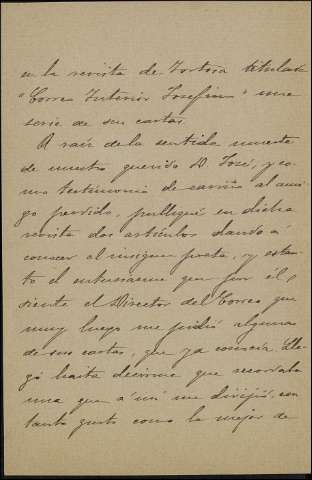 en la revista de Tortosa titulada
"Correo Interior Josefino" una
serie de sus cartas.
A raíz de la sentida muerte
de nuestro querido D. José, y co-
mo testimonio de cariño al ami-
go perdido, publiqué en dicha
revista dos artículos dando á
conocer al insigne poeta, y es tan-
to el entusiasmo que por él
siente el Director del Correo que
muy luego me pidió algunas
de sus cartas, que ya conocía. Lle-
gó hasta decirme que recordaba
una que á mí me dirijió, con
tanto gusto como la mejor de